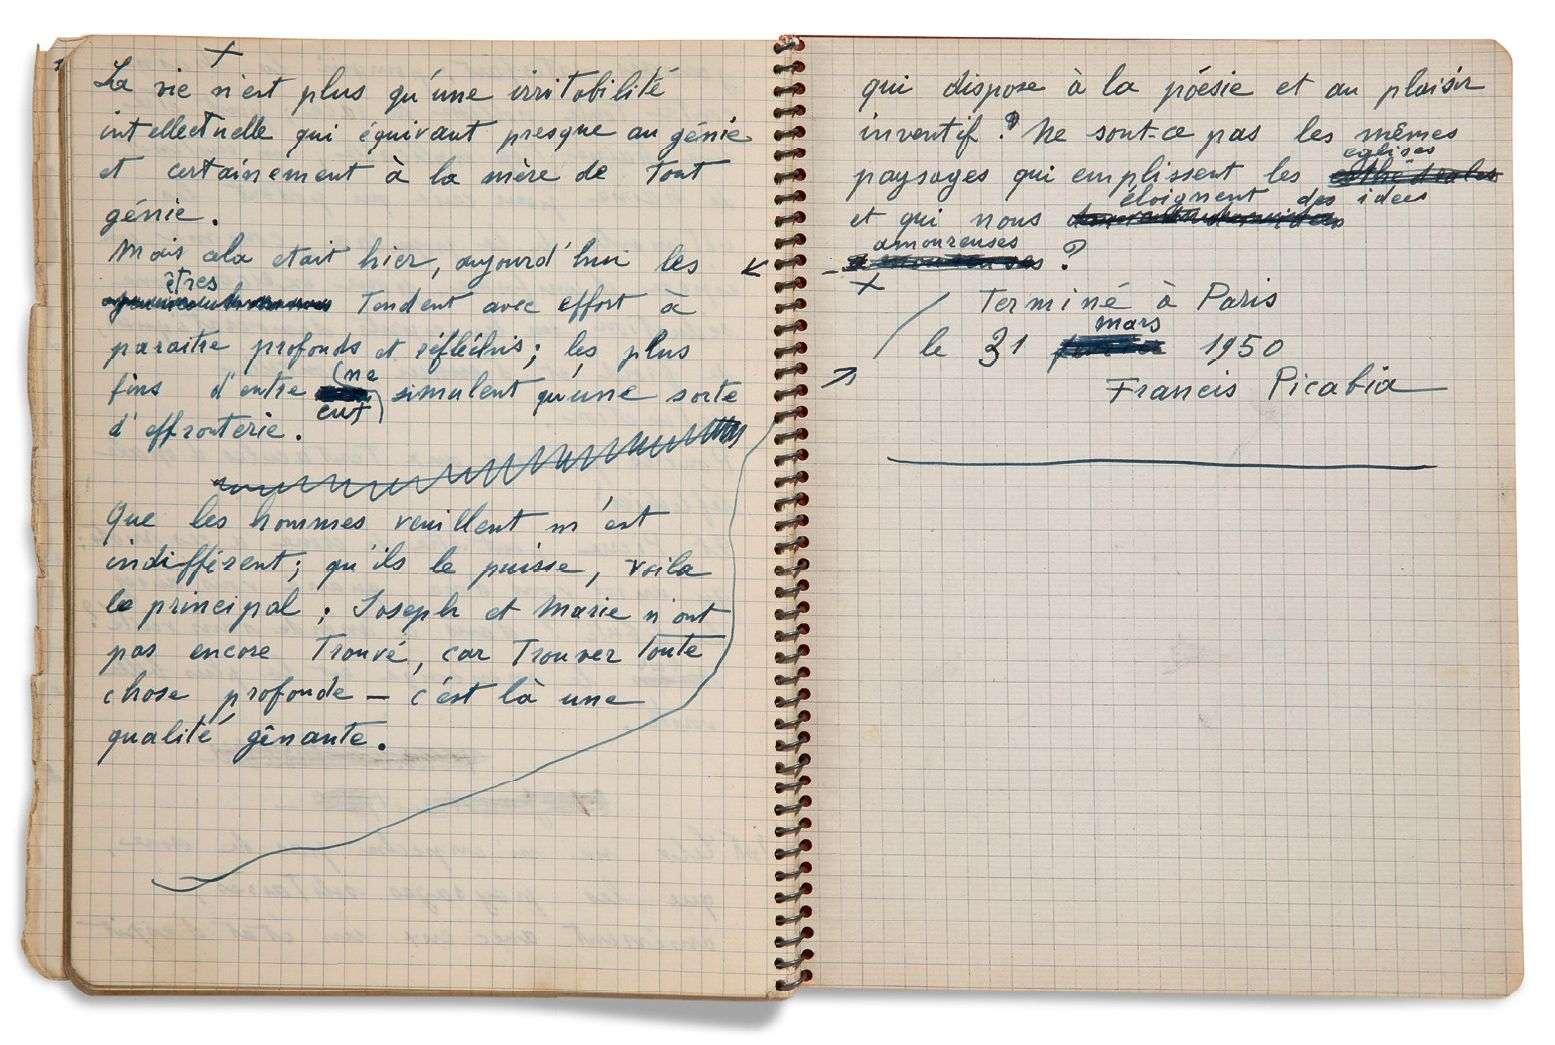 La vie n'est plus qu'une irritabilité
intellectuelle qui équivaut presque au génie
et certainement à la mère de tout
génie.
Mais cela etait hier, aujourd'hui les
êtres
tendent avec effort à
paraitre profonds et réfléchis ; les plus
fins d'entre eux (ne simulent qu'une sorte
d'effronterie.
Que les hommes veuillent m'est
indifférent ; qu'ils le puisse, voila
le principal ; Joseph et Marie n'ont
pas encore trouvé, car trouver toute
chose profonde — c'est là une
qualité gênante.
qui dispose à la poésie et au plaisir
inventif ? Ne sont-ce pas les mêmes
eglises
paysages qui emplissent les cathédrales
éloignent des idees
et qui nous
amoureuses
amoureuses ?
Terminé à Paris
mars
le 31 1950
Francis Picabia